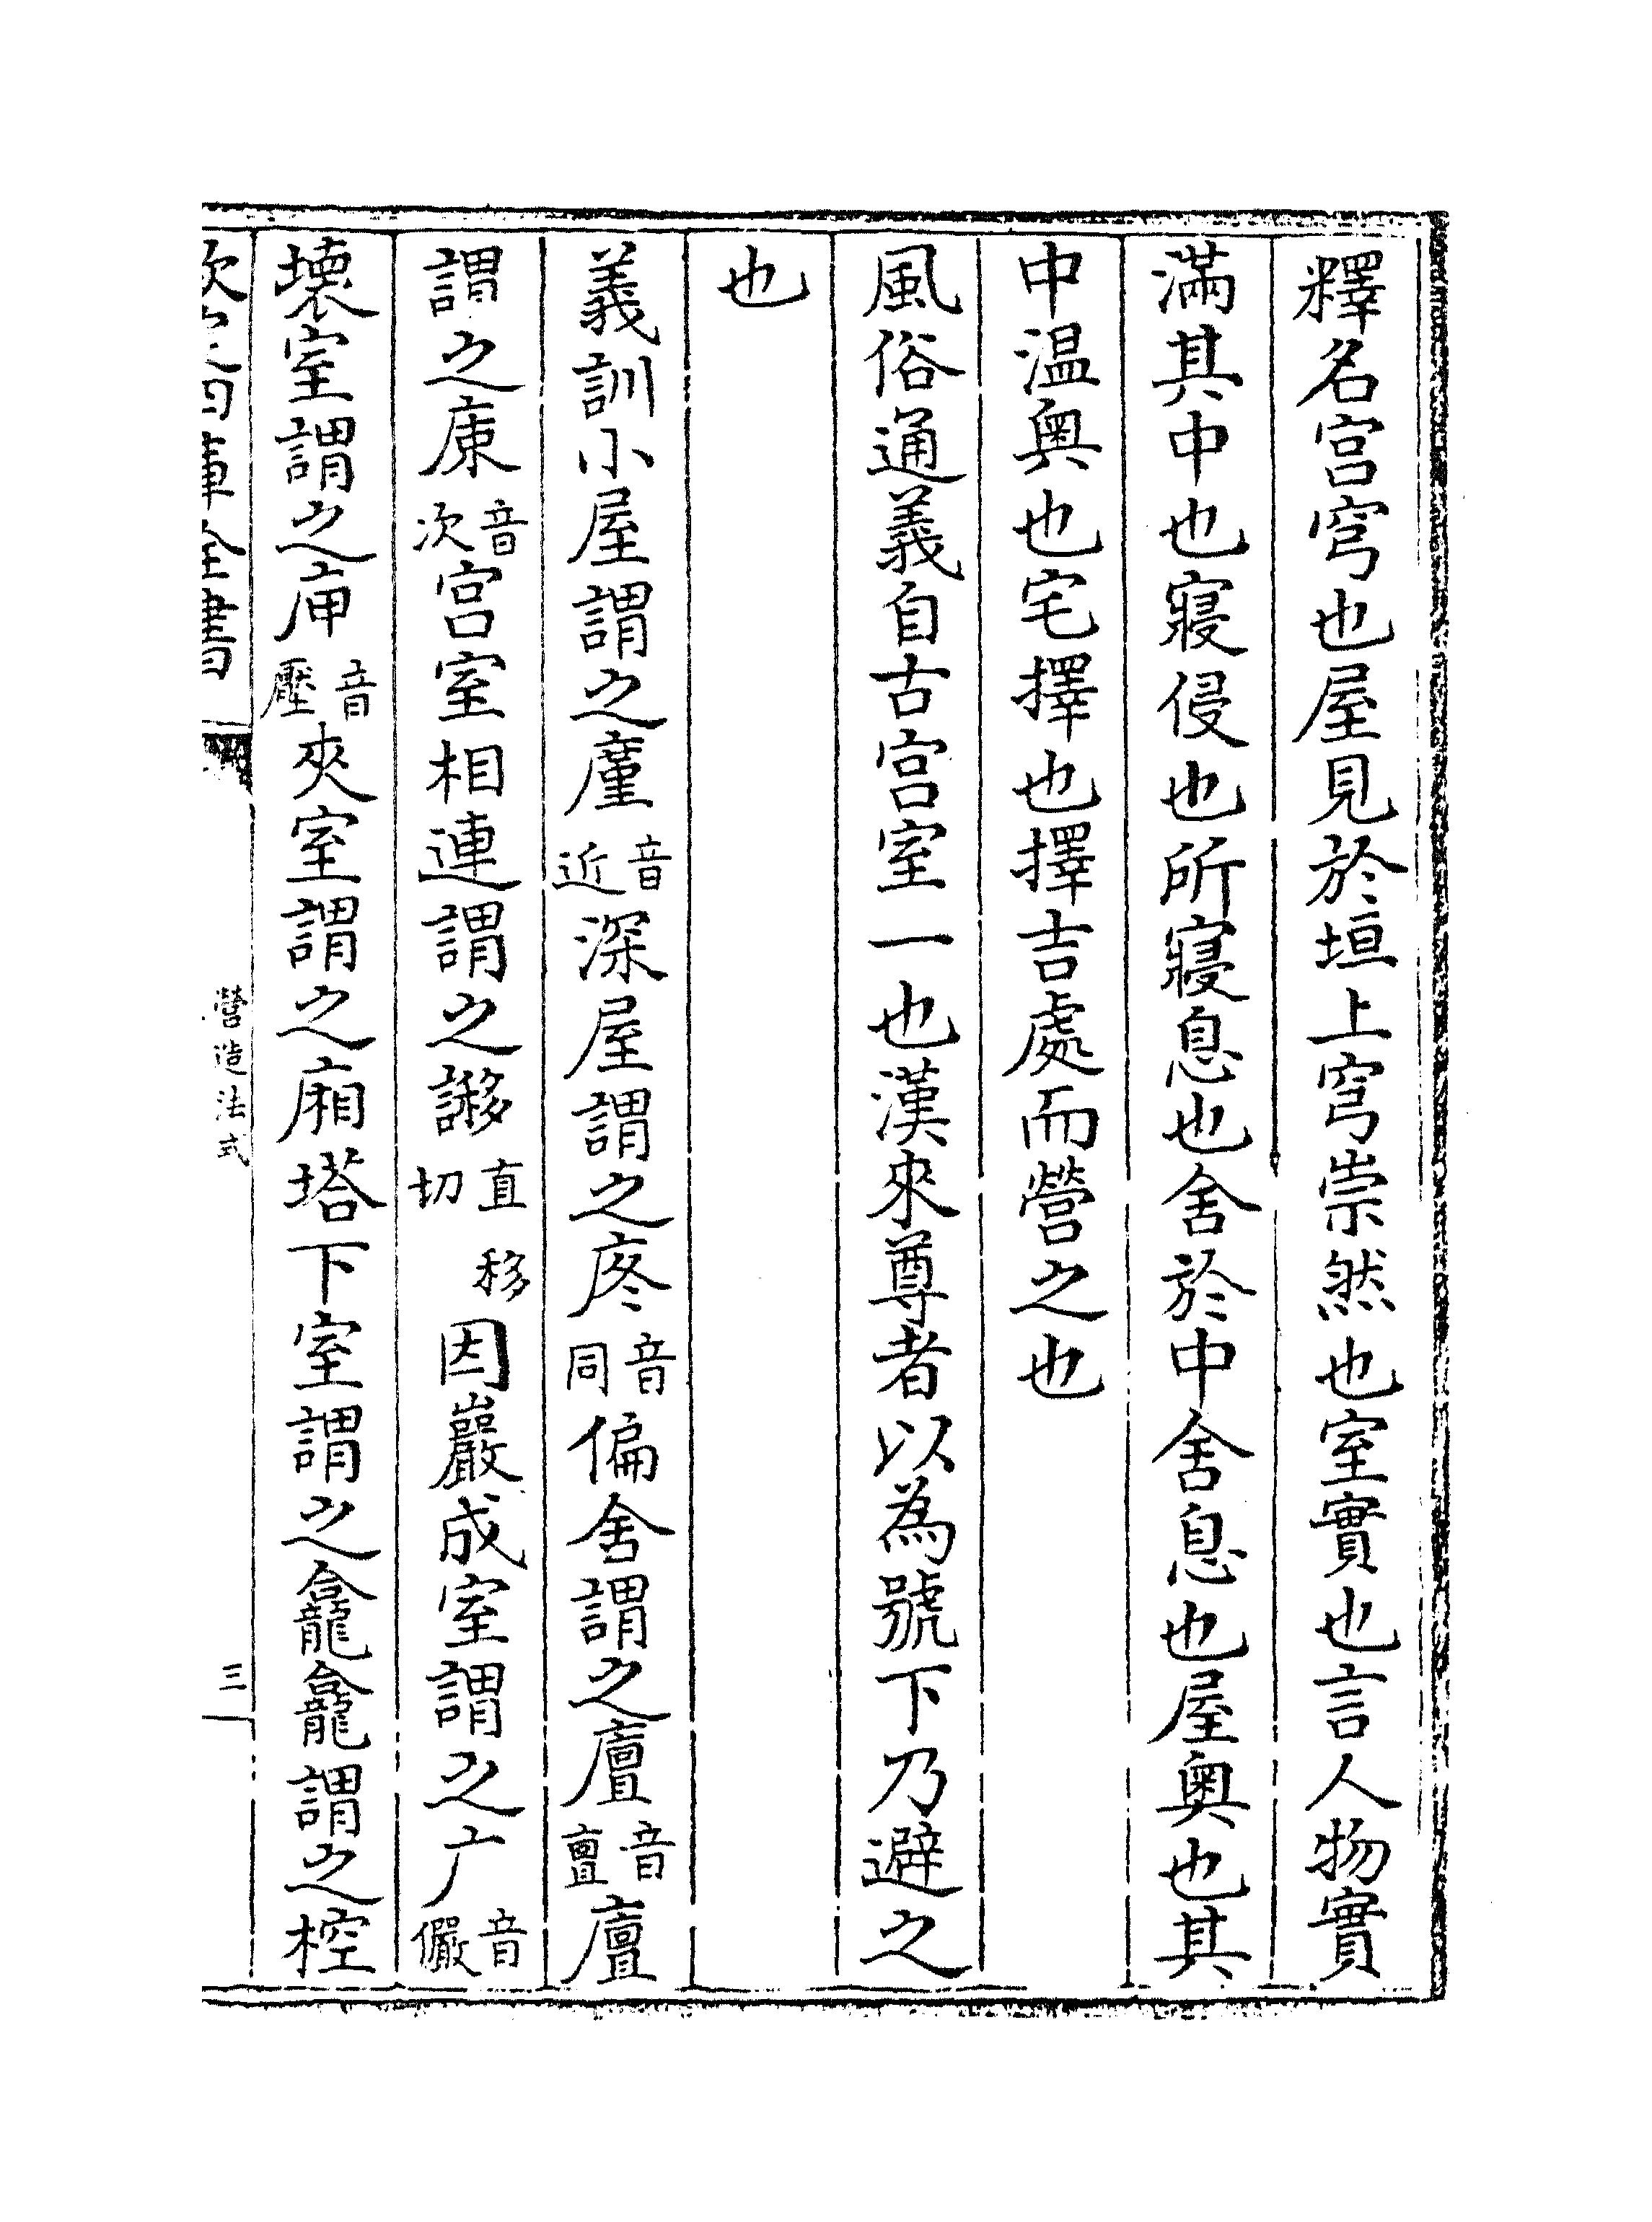 釋名宫穹也屋見於垣上穹崇然也室實也言人物實
滿其中也寢侵也所寢息也舍於中舍息也屋奥也其
中温奥也宅擇也擇吉處而營之也
風俗通義自古宫室一也漢來尊者以為號下乃避之
也
義訓小屋謂之廑音近深屋謂之庝音同偏舍謂之廛音亶廛
謂之㡽音次宫室相連謂之謻直移切因巖成室謂之广音儼
壊室謂之庘音壓夾室謂之廂塔下室謂之龕龕謂之椌
欽定四庫全書
營造法式
三